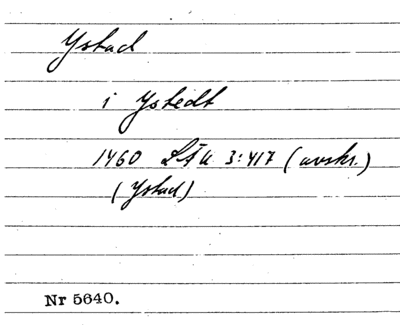 Ystad
i Ystedt
1460 LÄU 3:417 (avskr.)
(Ystad)
Nr 5640.